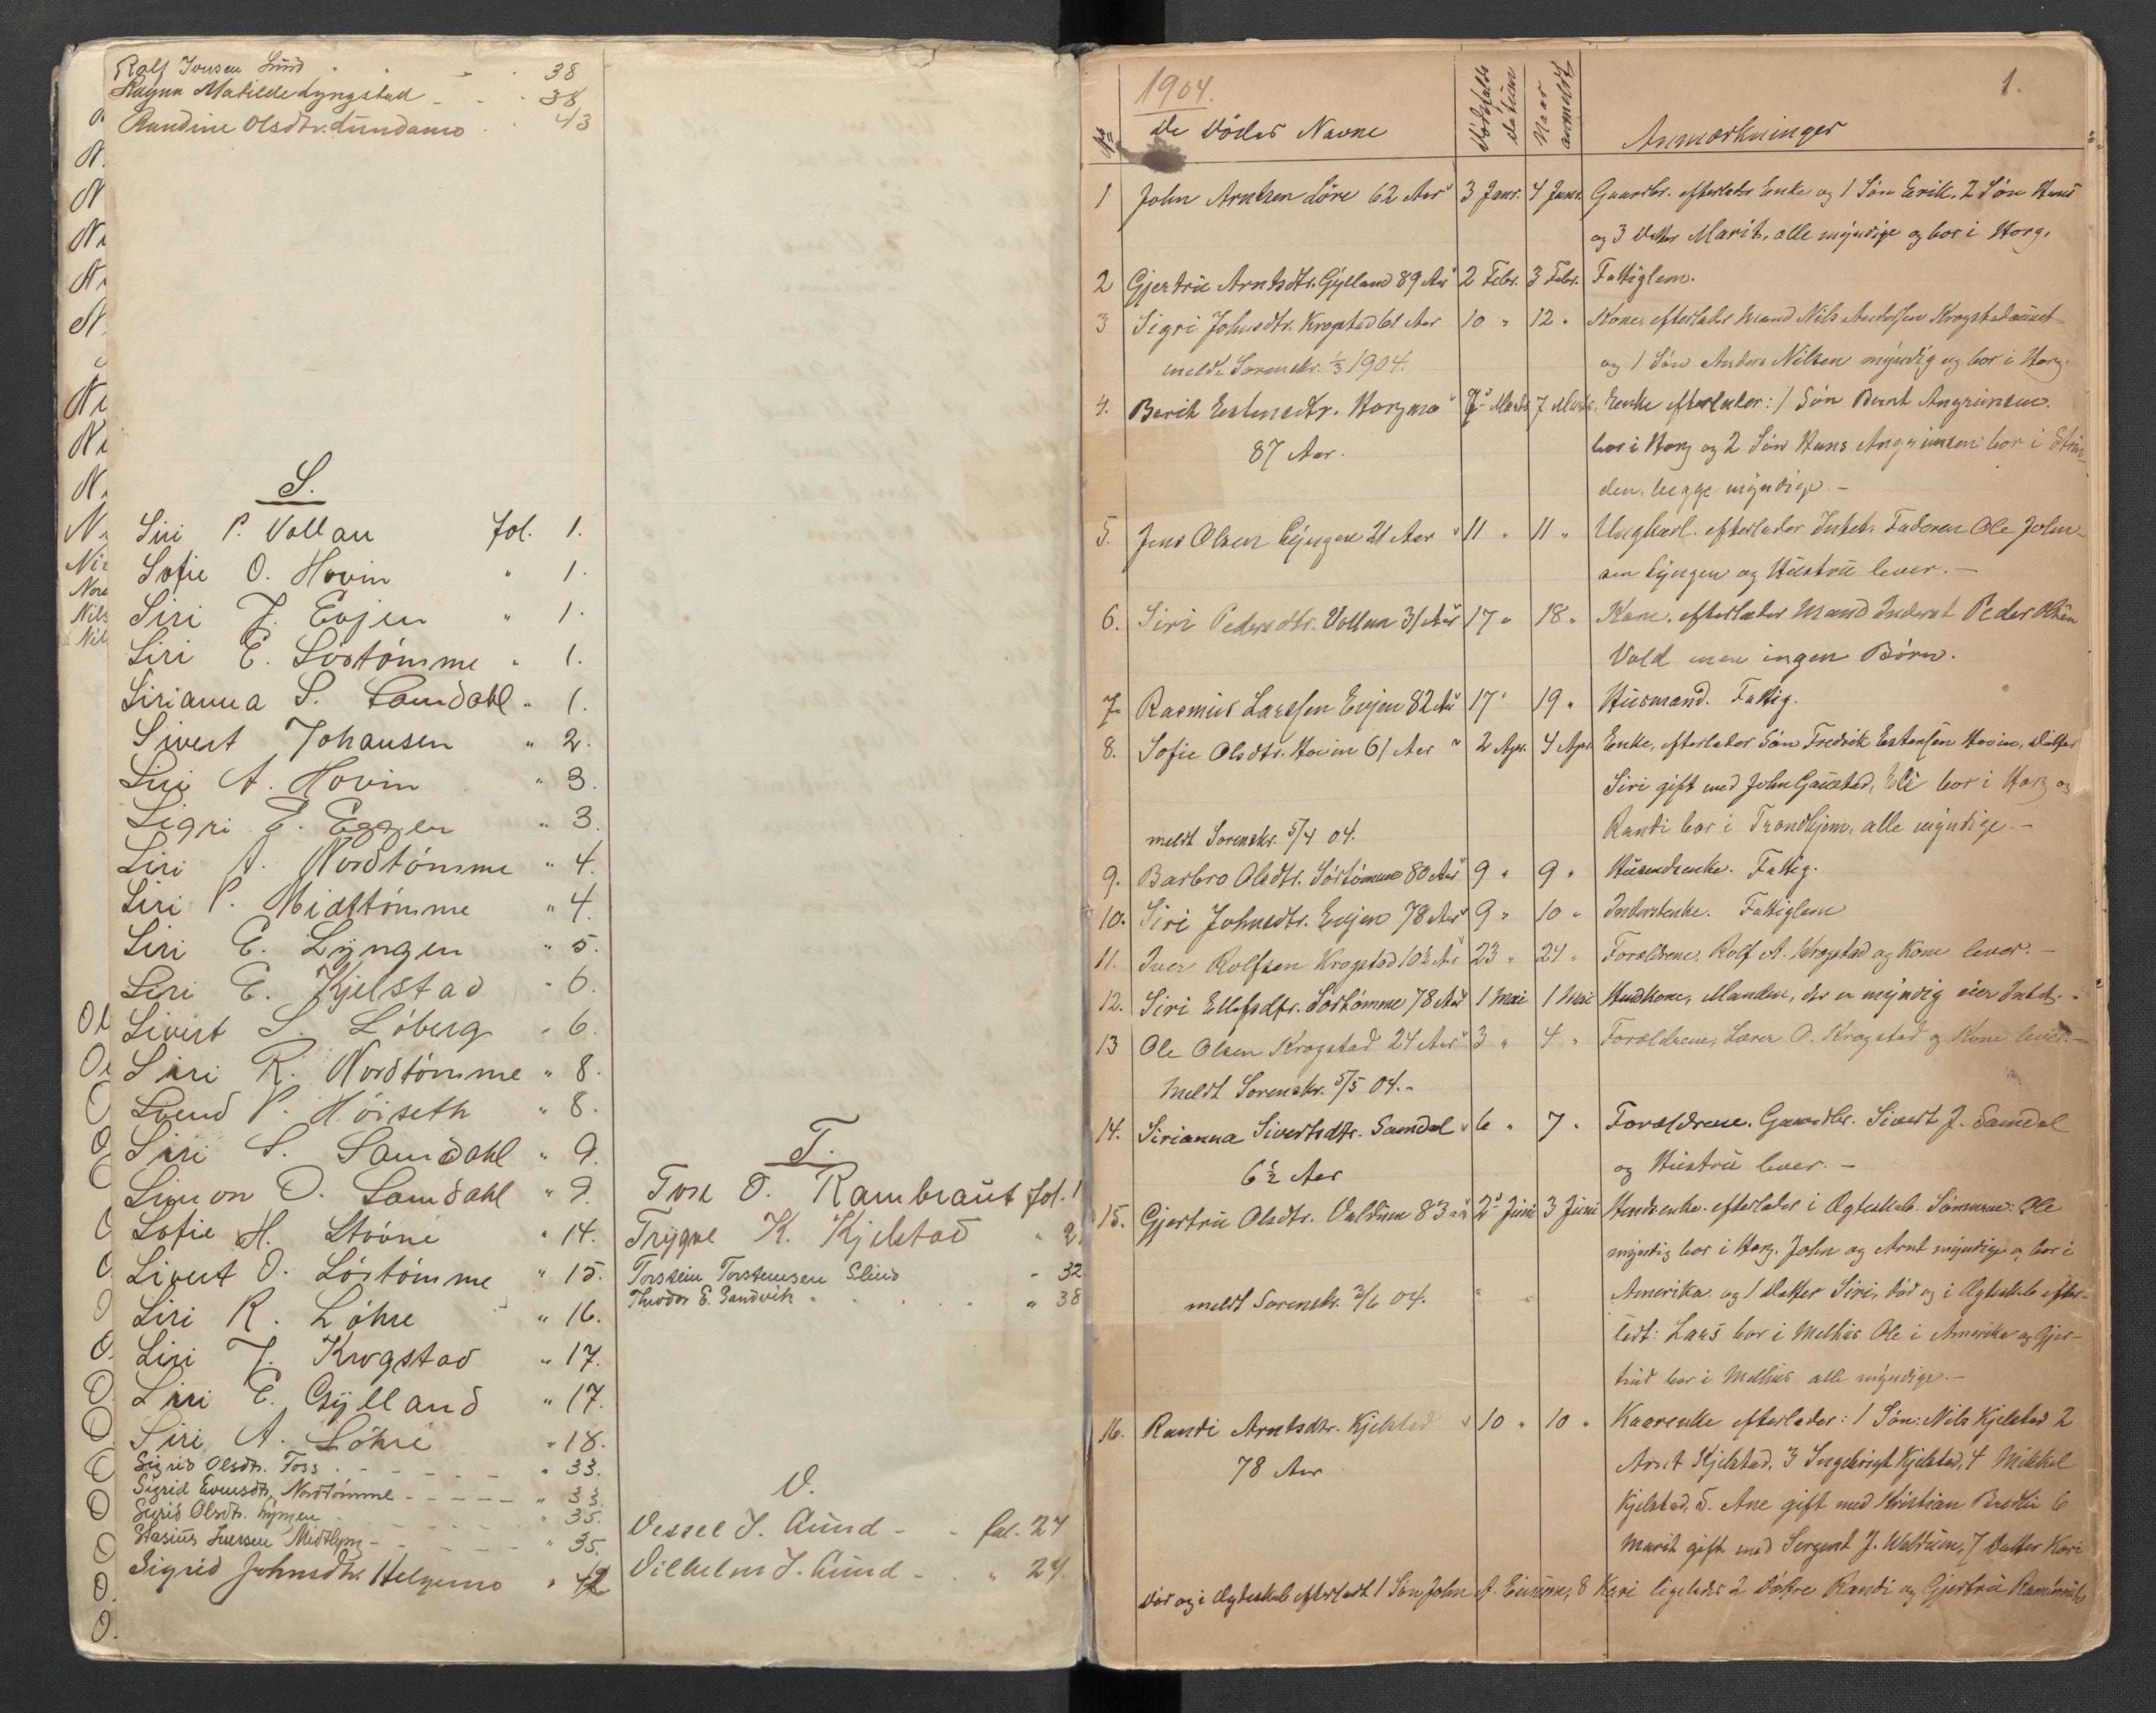 Rolf Jonsen Lund - - - 38
Ragna Matilde Lyngstad - - 38
Randine Olsdtr. Lundamo - - 43
S.
Siri P. Vollan fol. 1.
Sofie O. Hovin " 1.
Siri J. Evjen " 1.
Siri E. Søstømme " 1.
Sirianna S. Samdahl " 1.
Sivert Johansen " 2.
Siri A. Hovin " 3.
Sigri E. Eggen " 3.
Siri A. Nordtømme " 4.
Siri P. Midttømme " 4.
Siri E. Lyngen " 5.
Siri E. Kjelstad " 6.
Sivert S. Løberg " 6.
Siri R. Nordtømme " 8.
Svend P. Høiseth " 8.
Siri S. Samdahl " 9.
Simon O. Samdahl " 9.
Sofie H. Støvne " 14.
Sivert O. Sørtømme " 15.
Siri R. Løhre " 16.
Siri J. Krogstad " 17.
Siri E. Gylland " 17.
Siri A. Løhre " 18.
Sigrid Olsdtr. Foss - - - " 33.
Sigrid Evensdtr. Nordtømme - - - - " 33.
Sigrid Olsdtr. Lyngen - - - " 35.
Stasius Iversen Midtlyng - - - " 35.
Sigrid Johnsdtr. Helgemo " 42
T.
Tore O. Rambraut fol. 1
Trygve K. Kjelstad " 21
Torstein Torstensen Sluid - 32
Theodor E. Sandvik - - - " 38
V.
Vessel J. Aune - - fol. 24
Vilhelm J. Aune - - " 24.
1904. 1.
No De Dödes Navne Dødsfalds Datum Naar anmeldt Anmærkninger
1 John Arntsen Løre 62 Aar 3 Janr. 4 Janr. Gaardbr. efterlader Enke og 1 Søn Erik, 2 Søn Hans
og 3 Datter Marit, alle myndige og bor i Horg.
2 Gjertru Arntsdtr. Gylland 89 Aar 2 Febr. 3 Febr. Fattiglem.
3 Sigri Johnsdtr. Krogstad 61 Aar 10 " 12 " Kone, efterlader Mand Nils Andersen Krogstadaunet
meldt Sorenskr. 1/3 1904. og 1 Søn Anders Nilsen myndig og bor i Horg.
4. Berit Estensdtr. Horgmo 7 Marts 7 Marts. Enke efterlader: 1 Søn Bernt Angrimsen
87 Aar. bor i Horg og 2 Søn Hans Angrimsen bor i Strin-
den, begge myndige. -
5. Jens Olsen Lyngen 21 Aar 11 " 11 " Ungkarl. efterlader Intet. Faderen Ole John-
sen Lyngen og Hustru lever. -
6. Siri Pedersdtr. Vollan 31 Aar 17 " 18 " Kone, efterlader Mand Inderst Peder Olsen
Vold men ingen Børn.
7. Rasmus Larssen Evjen 82 Aar 17 " 19 " Husmand. Fattig.
8. Sofie Olsdtr. Hovin 61 Aar 2 Apr. 4 Apr. Enke, efterlader Søn Fredrik Estensen Hovin, Datter
Siri gift med John Gaustad, Eli bor i Horg og
meldt Sorenskr. 5/4 04. Randi bor i Trondhjem, alle myndige. -
9. Barbro Olsdtr. Sørtømme 80 Aar 9 " 9 " Husmdsenke. Fattig.
10. Siri Johnsdtr. Evjen 78 Aar 9 " 10 " Inderstenke. Fattiglem
11. Iver Rolfsen Krogstad 10½ Aar 23 " 24 " Forældrene, Rolf A. Krogstad og Kone lever. -
12. Siri Ellefsdtr. Sørtømme 78 Aar 1 Mai 1 Mai Husmkone, Manden, der er myndig eier Intet. -
13 Ole Olsen Krogstad 24 Aar 3 " 4 " Forældrene, Lærer O. Krogstad og Kone lever. -
Meldt Sorenskr. 5/5 04. -
14. Sirianna Sivertsdtr. Samdal 6 " 7 " Forældrene, Gaardbr. Sivert J. Samdal
6½ Aar og Hustru lever. -
15. Gjertru Olsdtr. Valdum 83 Aar 2 Juni 3 Juni Husmdsenke. efterlader i Ægteskab. Sønnerne: Ole
myndig bor i Horg. John og Arnt myndige og bor i
meldt Sorenskr. 3/6 04. Amerika og 1 Datter Siri, død og i Ægteskab efter-
ladt: Lars bor i Melhus Ole i Amerika og Gjer-
trud bor i Melhus alle myndige. -
16. Randi Arntsdtr. Kjelstad 10 " 10 " Kaarenke efterlader: 1 Søn: Nils Kjelstad 2
78 Aar Arnt Kjelstad, 3 Ingebrigt Kjelstad, 4 Mikkel
Kjelstad, 5. Ane gift med Kristian Bredli 6
Marit gift med Sergent J. Waldum, 7 Datter Kari
død og i Ægteskab efterladt 1 Søn John A. Eiunne, 8 Kari ligeledes 2 Døttre Randi og Gjertru Rambraut